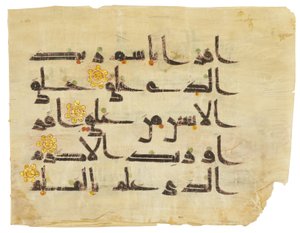 اقرا باسم ربك
الذى خلق خلق
الانسن من علق اقر
ا وربك الاكرم
الذى علم بالقلم